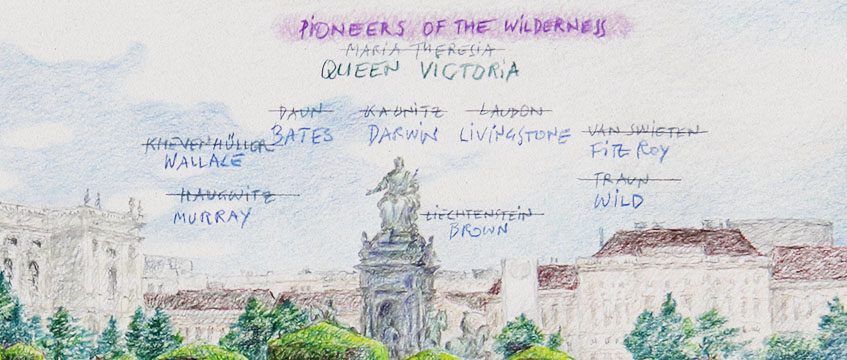 PIONEERS OF THE WILDERNESS
MARIA THERESIA
QUEEN VICTORIA
DAUN KAUNITZ LAUDON
BATES DARWIN LIVINGSTONE
KHEVENHÜLLER VAN SWIETEN
WALLACE FITZ ROY
HAUGWITZ TRAUN
MURRAY WILD
LIECHTENSTEIN
BROWN